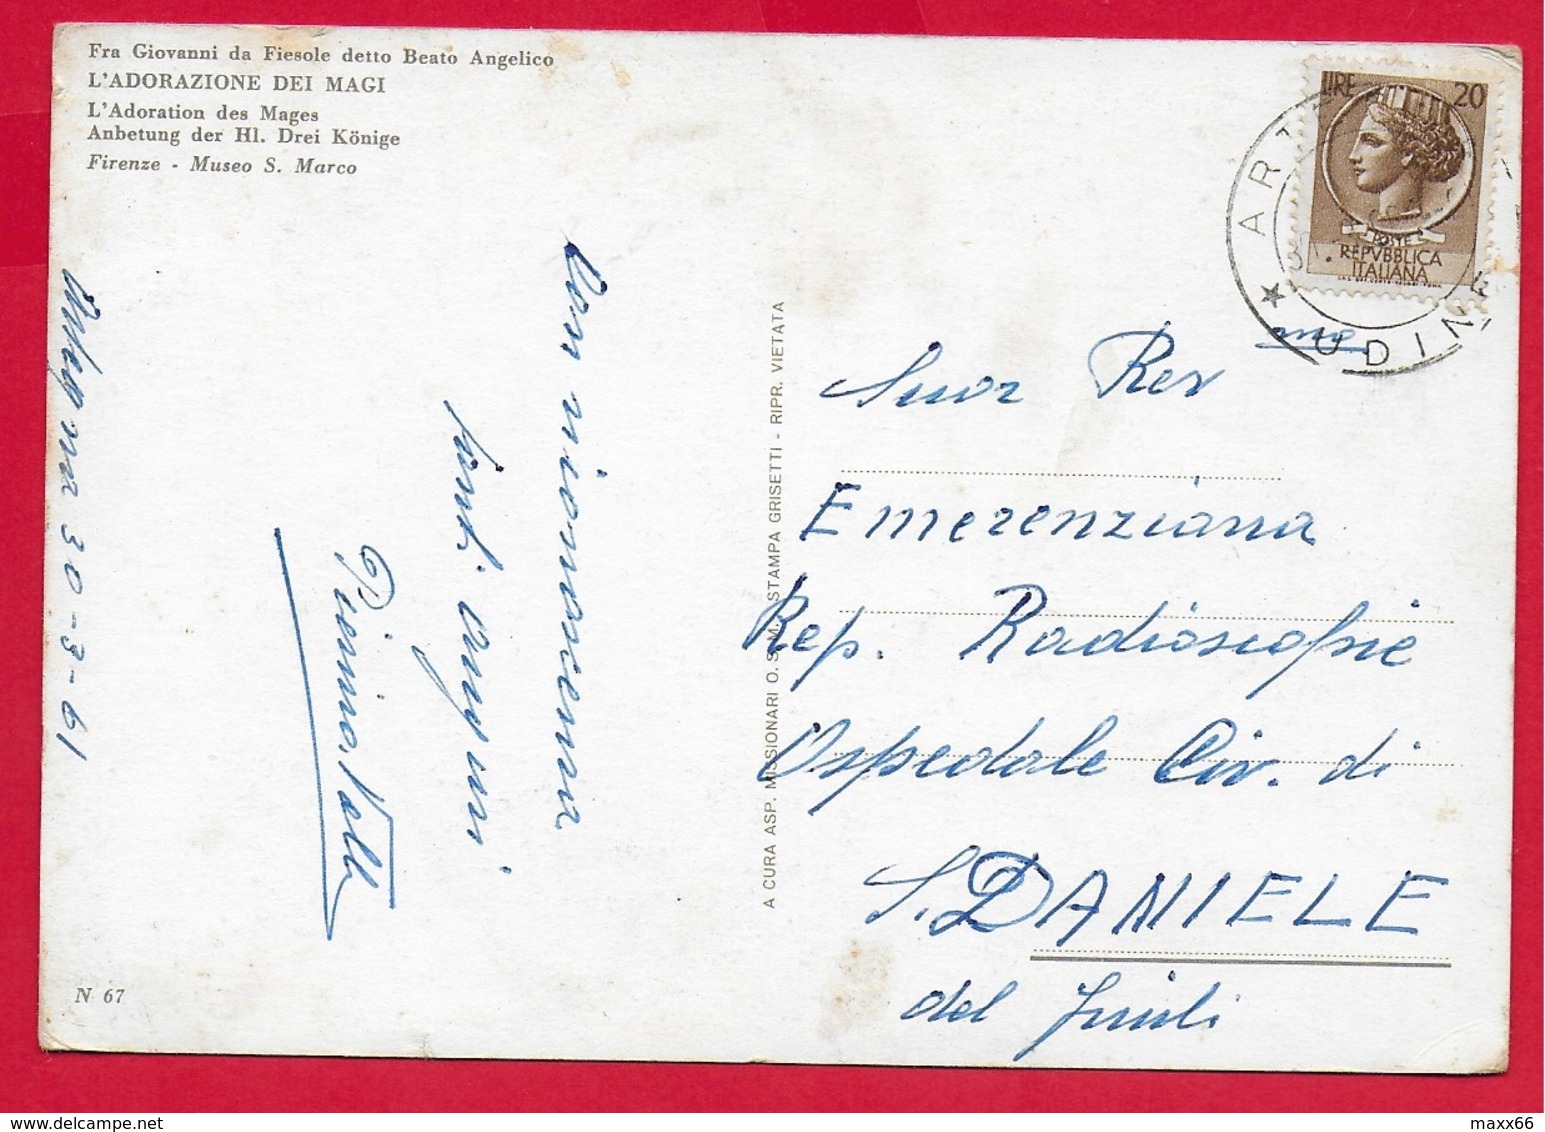 Fra Giovanni da Fiesole detto Beato Angelico
L'ADORAZIONE DEI MAGI
L'Adoration des Mages
Anbetung der Hl. Drei Könige
Firenze - Museo S. Marco
30-3-61
Con riconoscenza
tanti auguri
Pierina
N 67
A CURA ASP. MISSIONARI O. S. M. - STAMPA GRISETTI - RIPR. VIETATA
LIRE 20
POSTE
REPVBBLICA
ITALIANA
ART
UDINE
Suor Rev
Emerenziana
Rep. Radioscopie
Ospedale Civ. di
S. DANIELE
del Friuli
maxx66